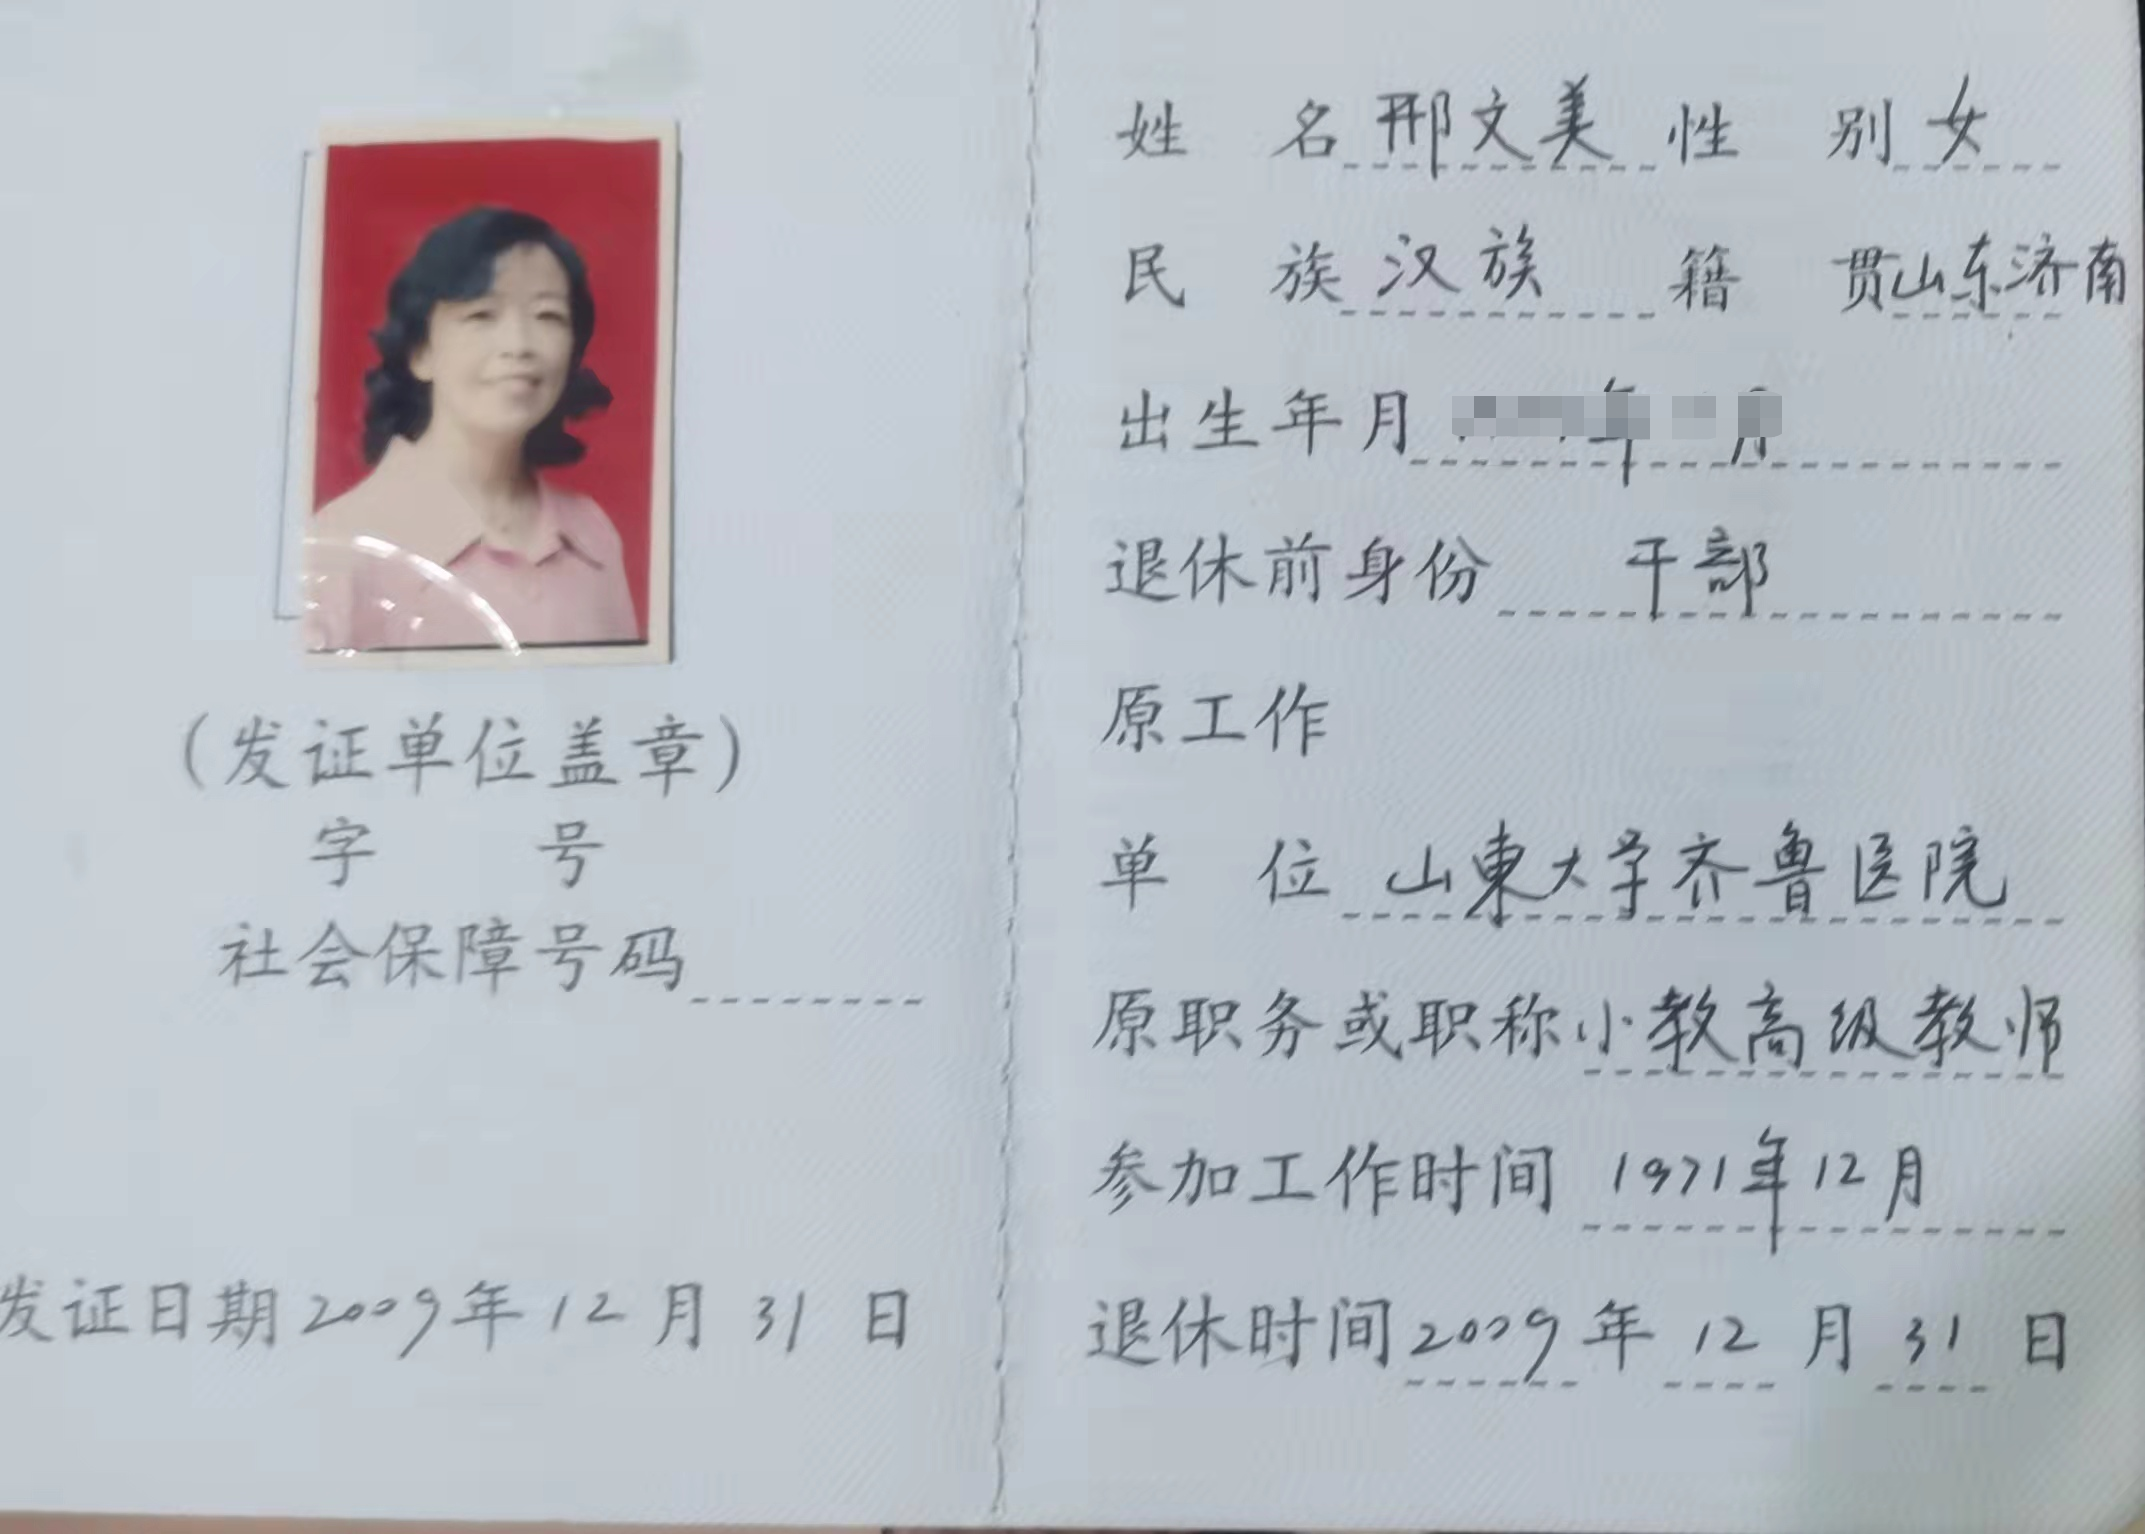 (发证单位盖章)
字 号
社会保障号码
发证日期2009年12月31日
姓 名 邢文美 性 别 女
民 族 汉族 籍 贯 山东济南
出生年月 年 月
退休前身份 干部
原工作
单 位 山東大学齐鲁医院
原职务或职称 小教高级教师
参加工作时间 1971年12月
退休时间 2009年12月31日